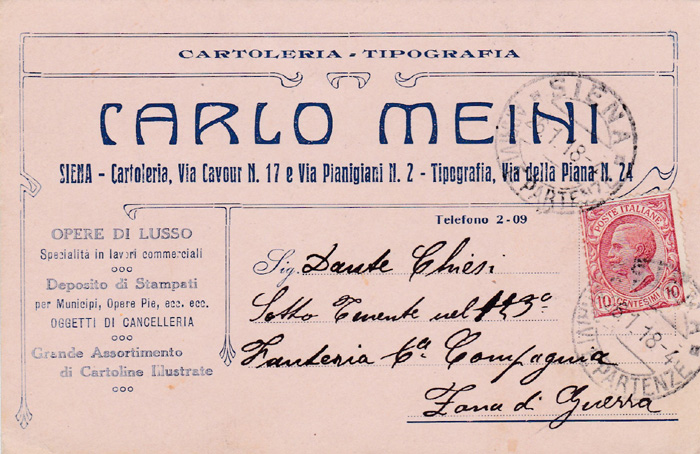 CARTOLERIA - TIPOGRAFIA
CARLO MEINI
SIENA - Cartoleria, Via Cavour N. 17 e Via Pianigiani N. 2 - Tipografia, Via della Piana N. 24
Telefono 2-09
OPERE DI LUSSO
Specialità in lavori commerciali
Deposito di Stampati
per Municipi, Opere Pie, ecc. ecc.
OGGETTI DI CANCELLERIA
Grande Assortimento
di Cartoline Illustrate
Sig. Dante Chiesi
Sotto Tenente nel 113°
Fanteria 6a Compagnia
Zona di Guerra
SIENA
1.18
PARTENZE
POSTE ITALIANE
10 CENTESIMI 10
1.18-4
PARTENZE